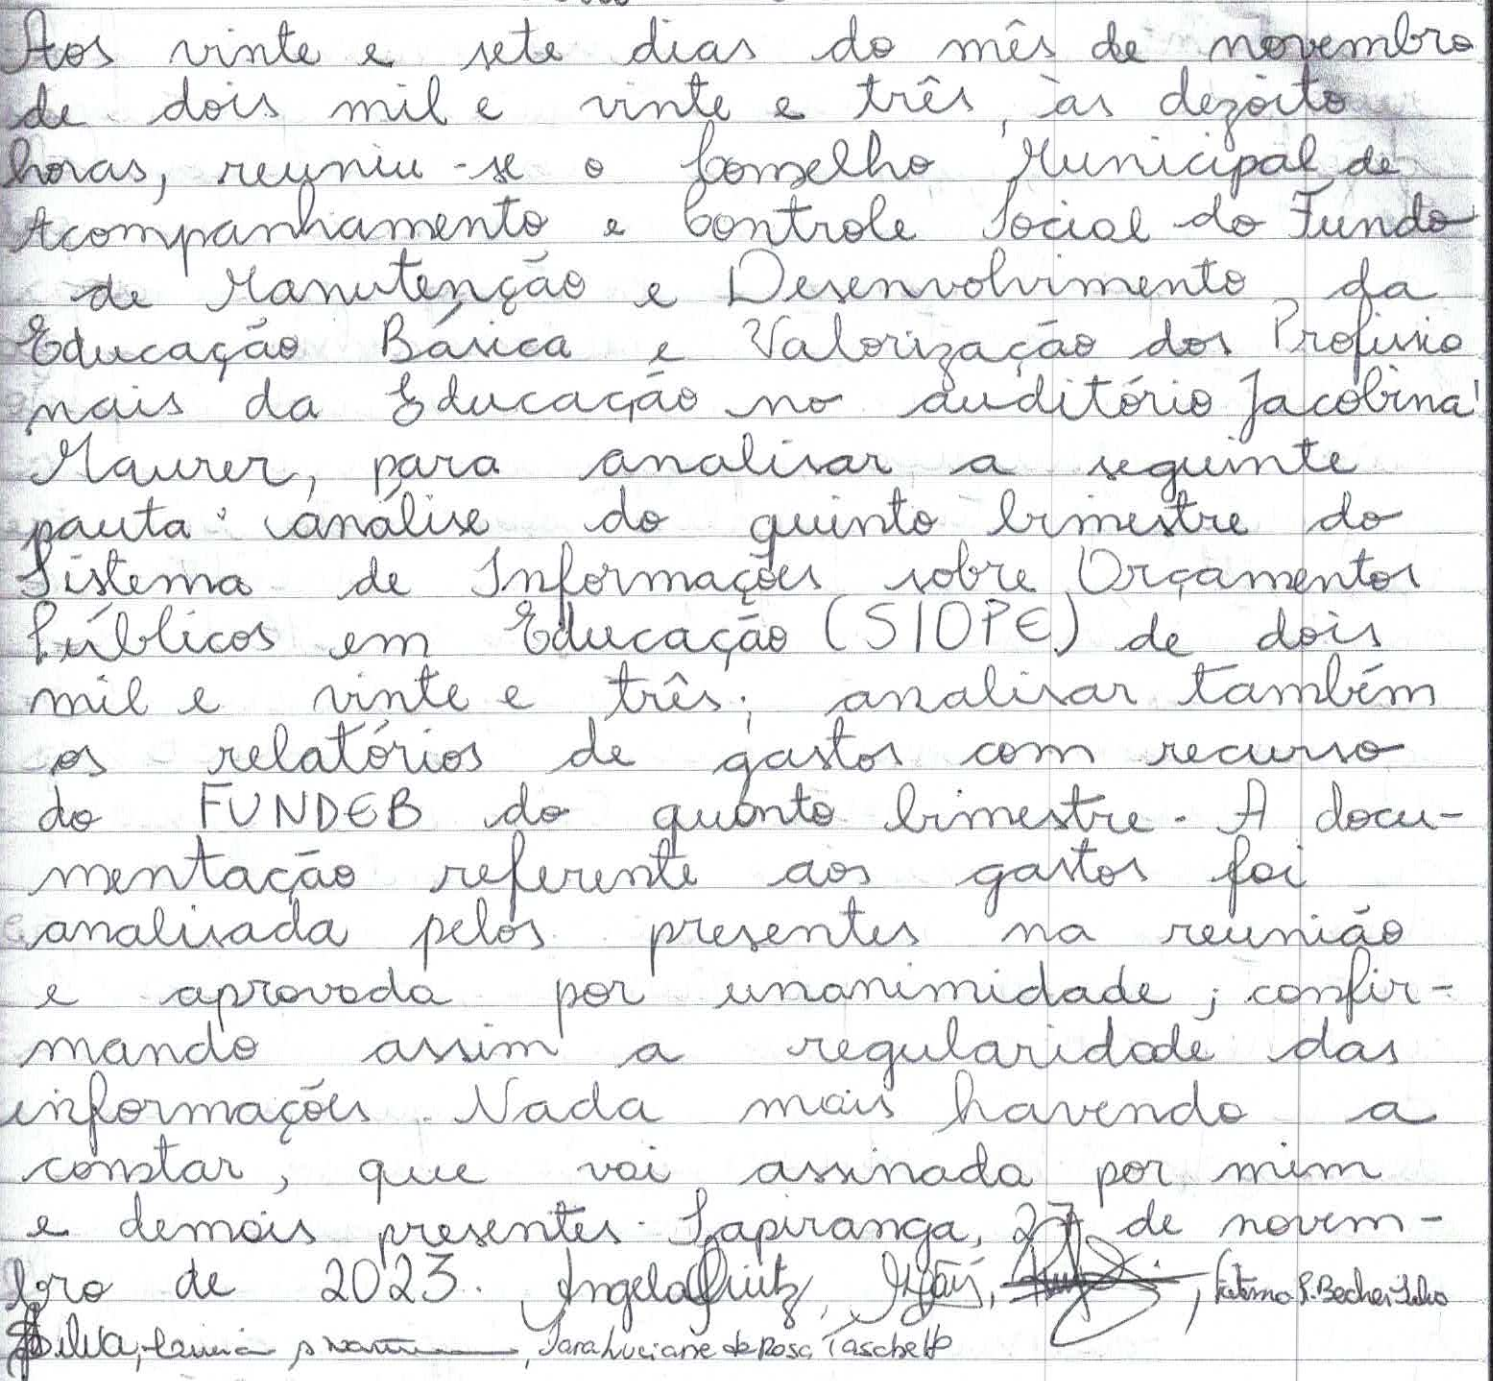 Aos vinte e sete dias do mês de novembro
de dois mil e vinte e três, às dezoito
horas, reuniu-se o Conselho Municipal de
Acompanhamento e Controle Social do Fundo
de Manutenção e Desenvolvimento da
Educação Básica e Valorização dos Profissio
nais da Educação no auditório Jacobina
Maurer, para analisar a seguinte
pauta: análise do quinto bimestre do
Sistema de Informações sobre Orçamentos
Públicos em Educação (SIOPE) de dois
mil e vinte e três; analisar também
os relatórios de gastos com recurso
do FUNDEB do quinto bimestre. A docu-
mentação referente aos gastos foi
analisada pelos presentes na reunião
e aprovada por unanimidade; confir-
mando assim a regularidade das
informações. Nada mais havendo a
constar, que vai assinada por mim
e demais presentes. Sapiranga, 27 de novem-
bro de 2023. Angela
Silva, Sara Luciane da Rosa